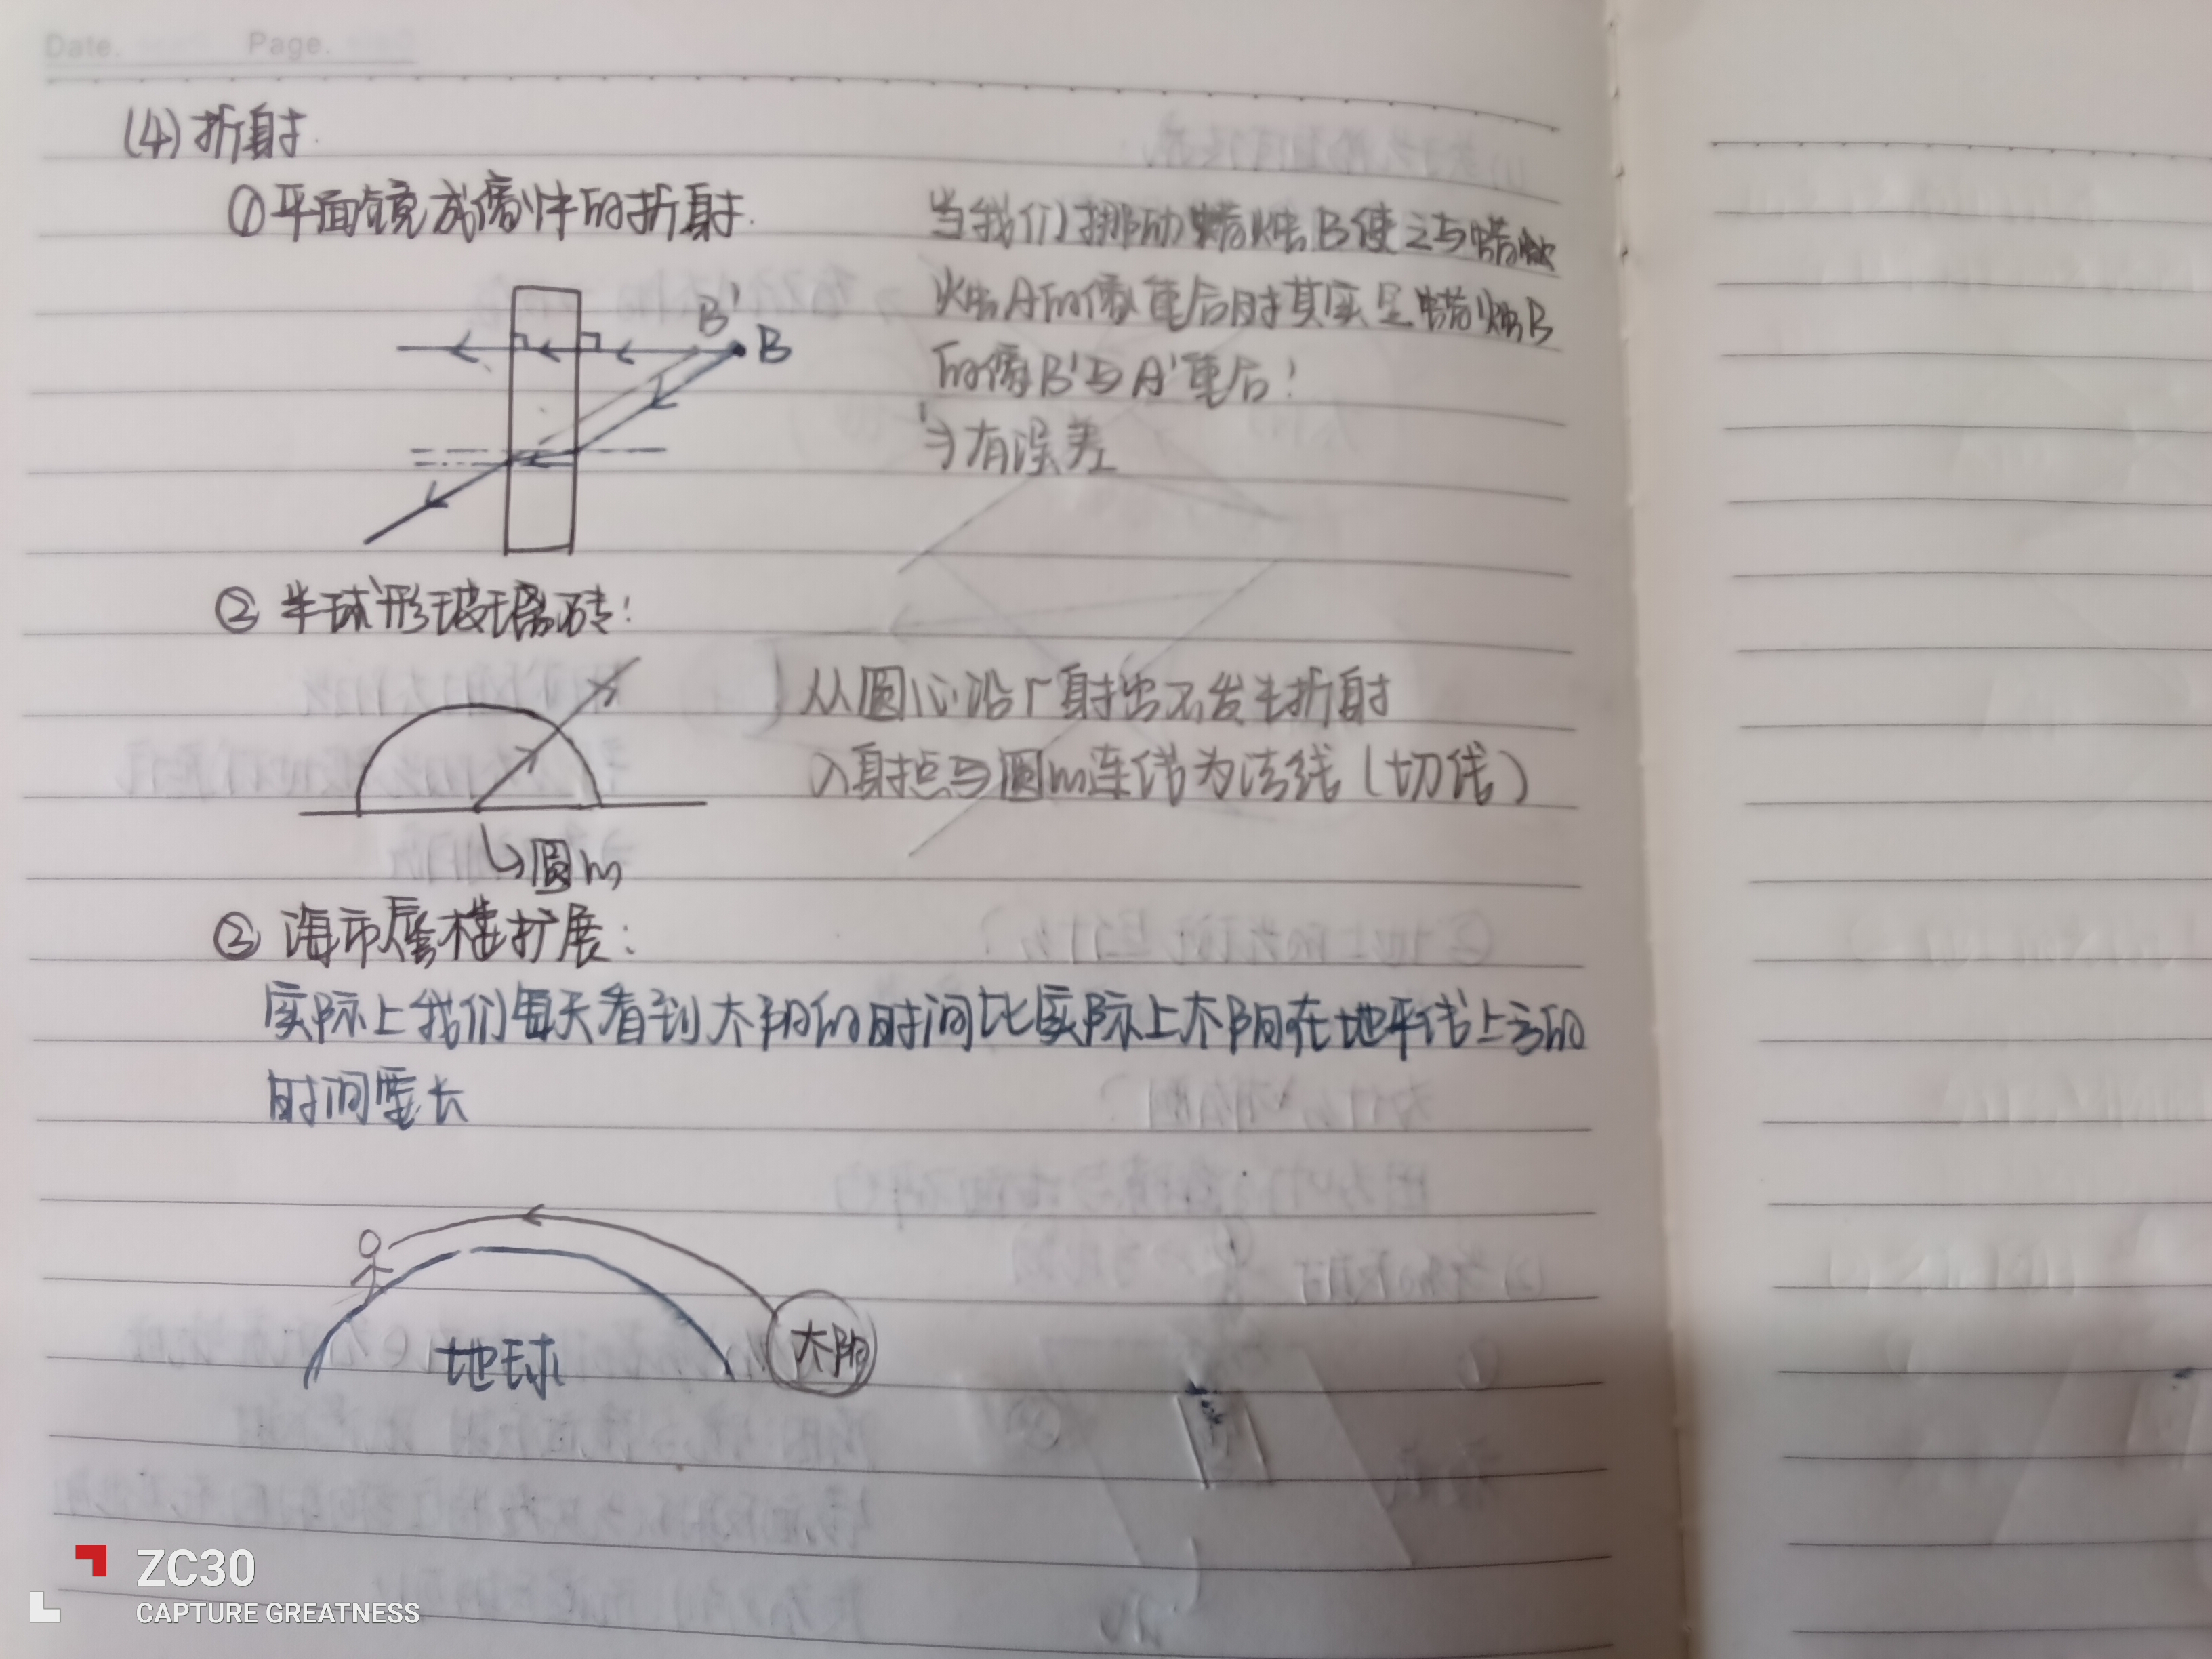 Date. Page.
(4) 折射
①平面镜成像时的折射.
当我们挪动蜡烛B使之与蜡烛
烛A的像重合时其实是蜡烛B
的像B'与A'重合!
→有误差
B'
B
② 半球形玻璃砖:
从圆心沿r射出不发生折射
入射点与圆心连线为法线(切线)
↳圆心
③ 海市蜃楼扩展:
实际上我们每天看到太阳的时间比实际上太阳在地平线上方的
时间要长
地球
太阳
ZC30
CAPTURE GREATNESS